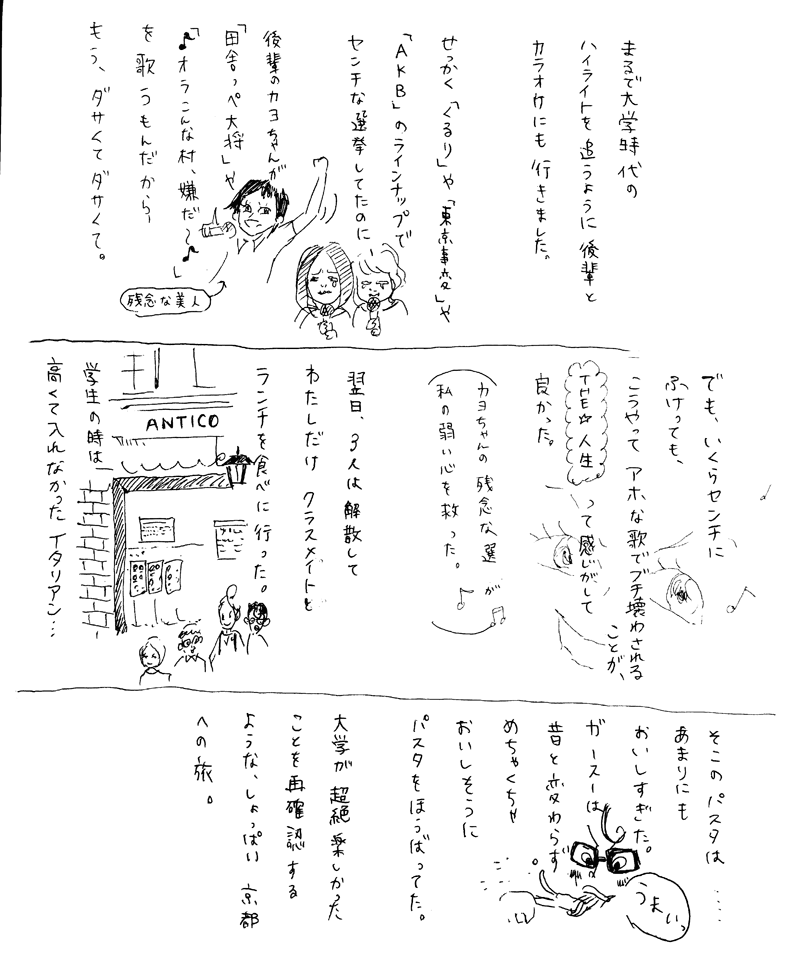 まるで大学時代の
ハイライトを追うように後輩と
カラオケにも行きました。
せっかく「くるり」や「東京事変」や
「AKB」のラインナップで
センチな選挙してたのに
後輩のカヨちゃんが
「田舎っぺ大将」や
「♪オラこんな村、嫌だ〜♪」
を歌うもんだから、
もう、ダサくてダサくて。
残念な美人
でも、いくらセンチに
ふけっても、
こうやってアホな歌でブチ壊わされる
ことが、
THE☆人生
って感じがして
良かった。
カヨちゃんの残念な選が
私の弱い心を救った。
翌日、3人は解散して
わたしだけクラスメイトと
ランチを食べに行った。
ANTICO
学生の時は
高くて入れなかったイタリアン…
そこのパスタは……
あまりにも
おいしすぎた。
ガースーは
昔と変わらず
めちゃくちゃ
おいしそうに
パスタをほうばってた。
うまいっ
大学が超絶楽しかった
ことを再確認する
ような、しょっぱい京都
への旅。